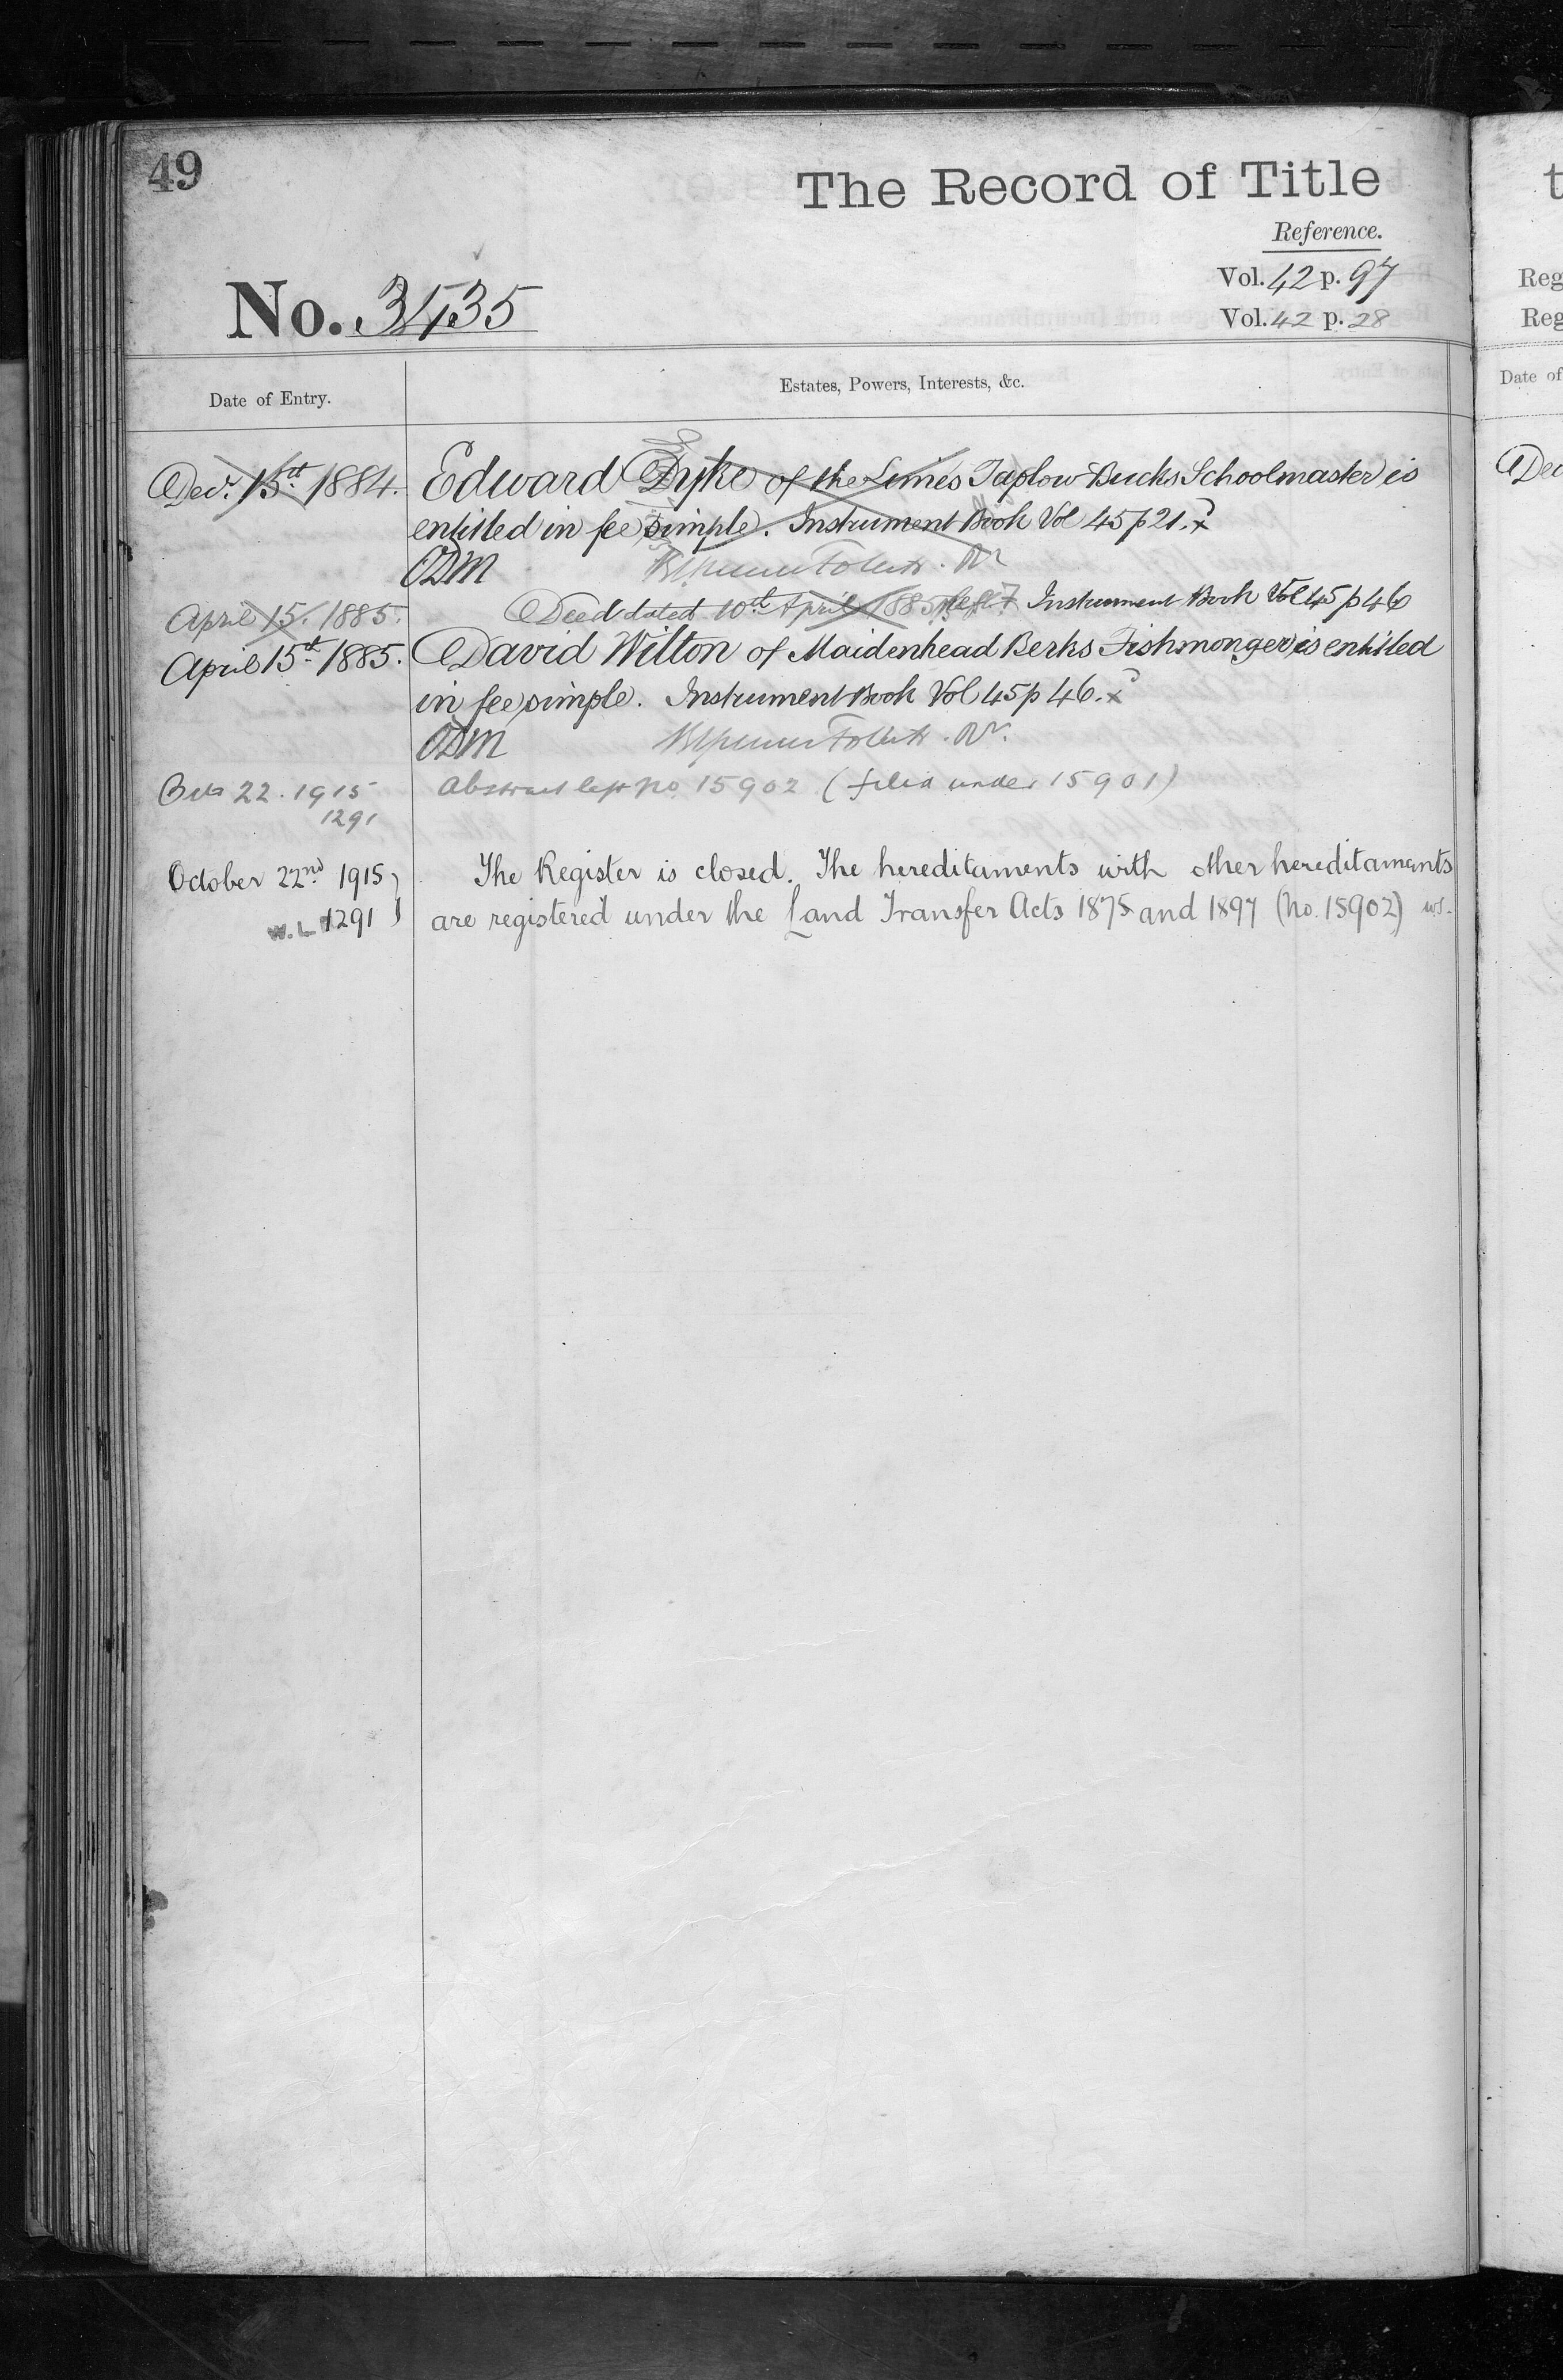 49
The Record of Title
Reference.
Vol. 42 p. 97
No. 3435
Vol. 42 p. 28
Date of Entry.
Estates, Powers, Interests, &c.
Decr. 15th 1884.
Edward Dyke of the Limes Taplow Bucks Schoolmaster is
entitled in fee simple. Instrument Book Vol 45 p 21.
ODM
April 15. 1885.
Deed dated 10th April 1885 Instrument Book Vol 45 p 46
April 15th 1885.
David Wilton of Maidenhead Berks Fishmonger is entitled
in fee simple. Instrument Book Vol 45 p 46.
ODM
22. 1915
Abstract left No. 15902 (filed under 15901)
1291
October 22nd 1915
The Register is closed. The hereditaments with other hereditaments
W.L 1291
are registered under the Land Transfer Acts 1875 and 1897 (No. 15902) ws.
t
Reg
Reg
Date of
Dec